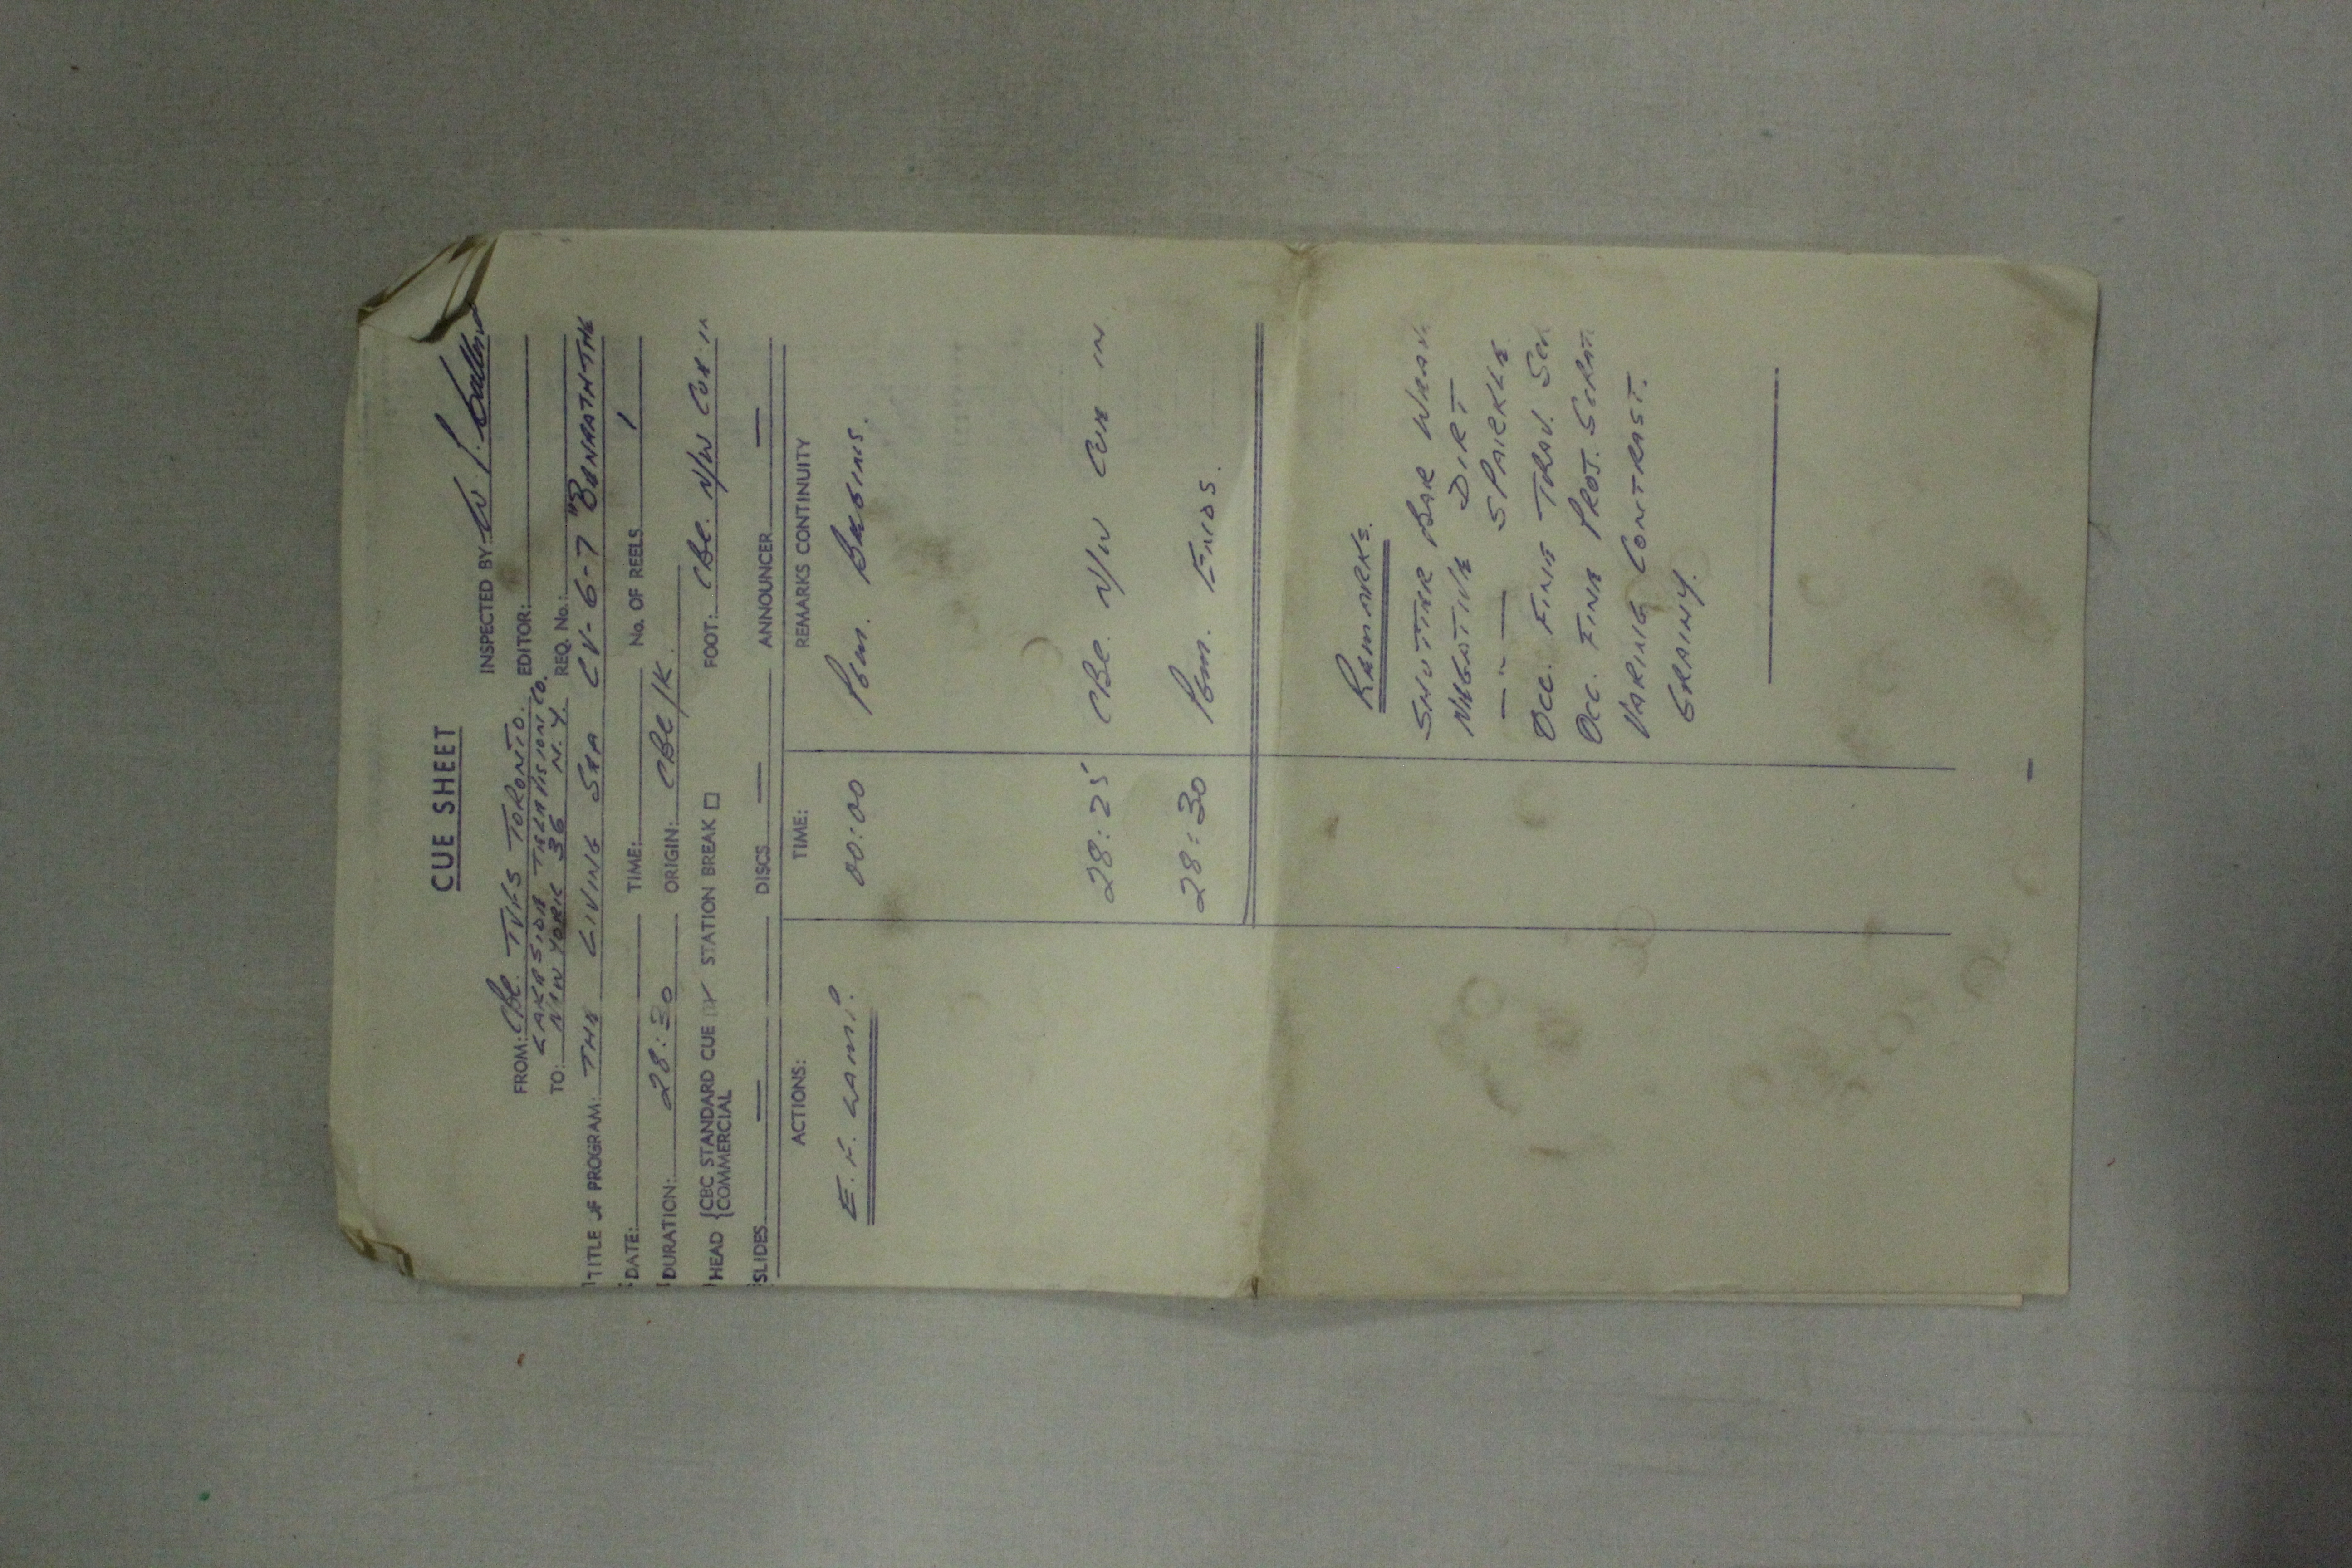 CUE SHEET
FROM: CBC TVFS TORONTO. INSPECTED BY:
LAKESIDE TELEVISION CO. EDITOR:
TO: NEW YORK 36 N.Y. REQ. No.:
TITLE OF PROGRAM: THE LIVING SEA CV-6-7 "BENEATH THE
DATE: TIME: No. OF REELS 1
DURATION: 28:30 ORIGIN: CBC/K.
HEAD {CBC STANDARD CUE STATION BREAK FOOT: CBC. N/W CUE IN
{COMMERCIAL
SLIDES — DISCS — ANNOUNCER —
ACTIONS: TIME: REMARKS CONTINUITY
00:00 PGM. BEGINS.
28:25 CBC. N/W CUE IN
28:30 PGM. ENDS.
REMARKS.
SHUTTER BAR WEAV.
NEGATIVE DIRT
— " — SPARKLE
OCC. FINE TRAV. SCR
OCC. FINE PROJ. SCRAT.
VARING CONTRAST.
GRAINY.